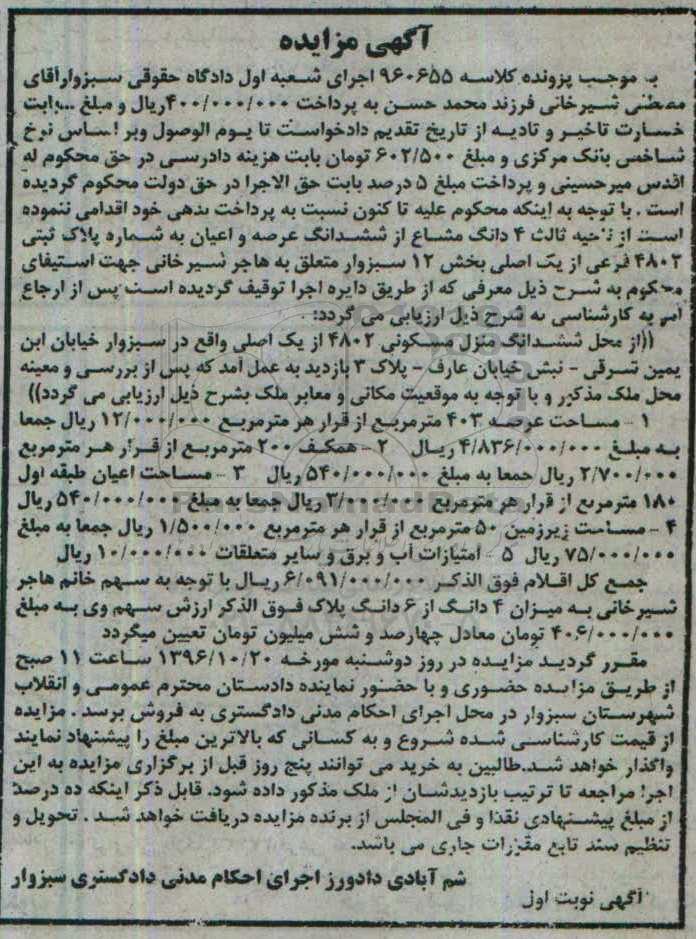 آگهی مزایده
به موجب پرونده کلاسه ۹۶۰۶۵۵ اجرای شعبه اول دادگاه حقوقی سبزوارآقای
مصطفی شیرخانی فرزند محمد حسن به پرداخت ۴۰۰/۰۰۰/۰۰۰ریال و مبلغ ...بابت
خسارت تاخیر و تادیه از تاریخ تقدیم دادخواست تا یوم الوصول وبر اساس نرخ
شاخص بانک مرکزی و مبلغ ۶۰۲/۵۰۰ تومان بابت هزینه دادرسی در حق محکوم له
اقدس میرحسینی و پرداخت مبلغ ۵ درصد بابت حق الاجرا در حق دولت محکوم گردیده
است . با توجه به اینکه محکوم علیه تا کنون نسبت به پرداخت بدهی خود اقدامی ننموده
است از ناحیه ثالث ۴ دانگ مشاع از ششدانگ عرصه و اعیان به شماره پلاک ثبتی
۴۸۰۲ فرعی از یک اصلی بخش ۱۲ سبزوار متعلق به هاجر شیرخانی جهت استیفای
محکوم به شرح ذیل معرفی که از طریق دایره اجرا توقیف گردیده است پس از ارجاع
امر به کارشناسی به شرح ذیل ارزیابی می گردد:
((از محل ششدانگ منزل مسکونی ۴۸۰۲ از یک اصلی واقع در سبزوار خیابان ابن
یمین شرقی - نبش خیابان عارف - پلاک ۳ بازدید به عمل آمد که پس از بررسی و معینه
محل ملک مذکور و با توجه به موقعیت مکانی و معابر ملک بشرح ذیل ارزیابی می گردد))
۱ - مساحت عرصه ۴۰۳ مترمربع از قرار هر مترمربع ۱۲/۰۰۰/۰۰۰ ریال جمعا
به مبلغ ۴/۸۳۶/۰۰۰/۰۰۰ ریال ۲ - همکف ۲۰۰ مترمربع از قرار هر مترمربع
۲/۷۰۰/۰۰۰ ریال جمعا به مبلغ ۵۴۰/۰۰۰/۰۰۰ ریال ۳ - مساحت اعیان طبقه اول
۱۸۰ مترمربع از قرار هر مترمربع ۳/۰۰۰/۰۰۰ ریال جمعا به مبلغ ۵۴۰/۰۰۰/۰۰۰ ریال
۴ - مساحت زیرزمین ۵۰ مترمربع از قرار هر مترمربع ۱/۵۰۰/۰۰۰ ریال جمعا به مبلغ
۷۵/۰۰۰/۰۰۰ ریال ۵ - امتیازات آب و برق و سایر متعلقات ۱۰/۰۰۰/۰۰۰ ریال
جمع کل اقلام فوق الذکر ۶/۰۹۱/۰۰۰/۰۰۰ ریال با توجه به سهم خانم هاجر
شیرخانی به میزان ۴ دانگ از ۶ دانگ پلاک فوق الذکر ارزش سهم وی به مبلغ
۴۰۶/۰۰۰/۰۰۰ تومان معادل چهارصد و شش میلیون تومان تعیین میگردد
مقرر گردید مزایده در روز دوشنبه مورخه ۱۳۹۶/۱۰/۲۰ ساعت ۱۱ صبح
از طریق مزایده حضوری و با حضور نماینده دادستان محترم عمومی و انقلاب
شهرستان سبزوار در محل اجرای احکام مدنی دادگستری به فروش برسد . مزایده
از قیمت کارشناسی شده شروع و به کسانی که بالاترین مبلغ را پیشنهاد نمایند
واگذار خواهد شد.طالبین به خرید می توانند پنج روز قبل از برگزاری مزایده به این
اجرا مراجعه تا ترتیب بازدیدشان از ملک مذکور داده شود. قابل ذکر اینکه ده درصد
از مبلغ پیشنهادی نقدا و فی المجلس از برنده مزایده دریافت خواهد شد . تحویل و
تنظیم سند تابع مقررات جاری می باشد.
شم آبادی دادورز اجرای احکام مدنی دادگستری سبزوار
آگهی نوبت اول